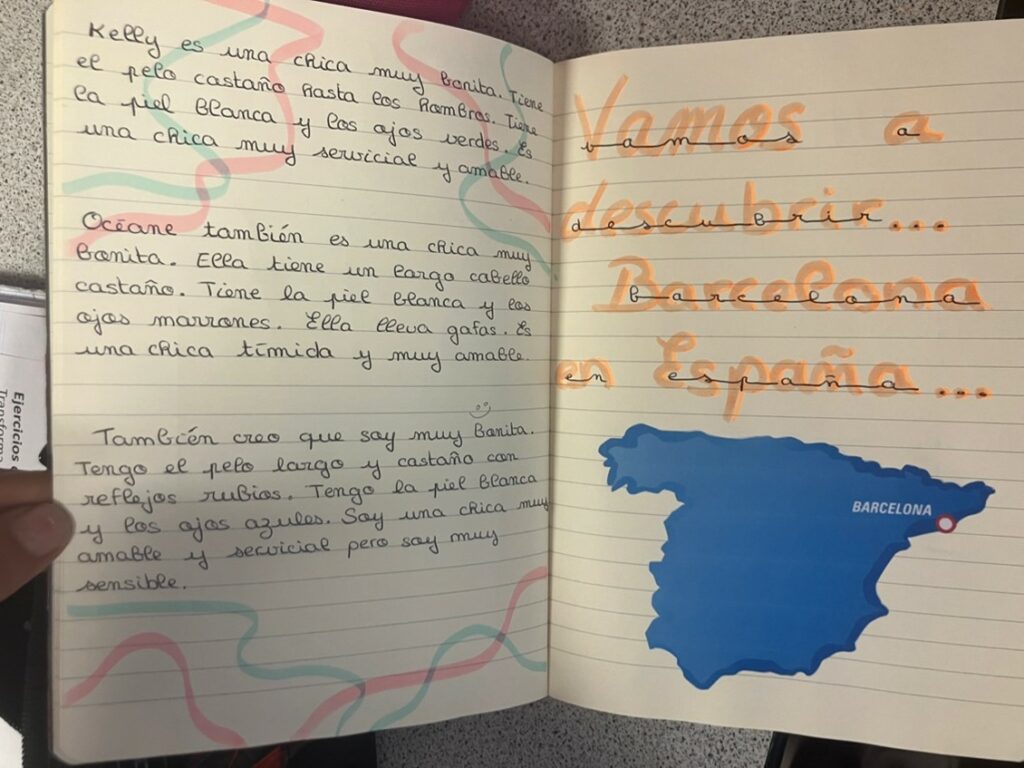 Kelly es una chica muy bonita. Tiene
el pelo castaño hasta los hombros. Tiene
la piel blanca y los ojos verdes. Es
una chica muy servicial y amable.
Océane también es una chica muy
bonita. Ella tiene un largo cabello
castaño. Tiene la piel blanca y los
ojos marrones. Ella lleva gafas. Es
una chica tímida y muy amable.
También creo que soy muy bonita.
Tengo el pelo largo y castaño con
reflejos rubios. Tengo la piel blanca
y los ojos azules. Soy una chica muy
amable y servicial pero soy muy
sensible.
Vamos a
vamos a
descubrir...
descubrir...
Barcelona
barcelona
en España...
en españa...
BARCELONA
Ejercicios